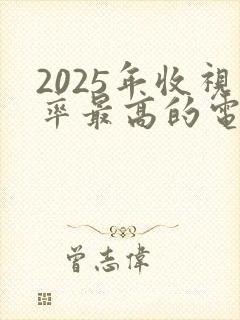 2025年收視
率最高的電
曾志偉